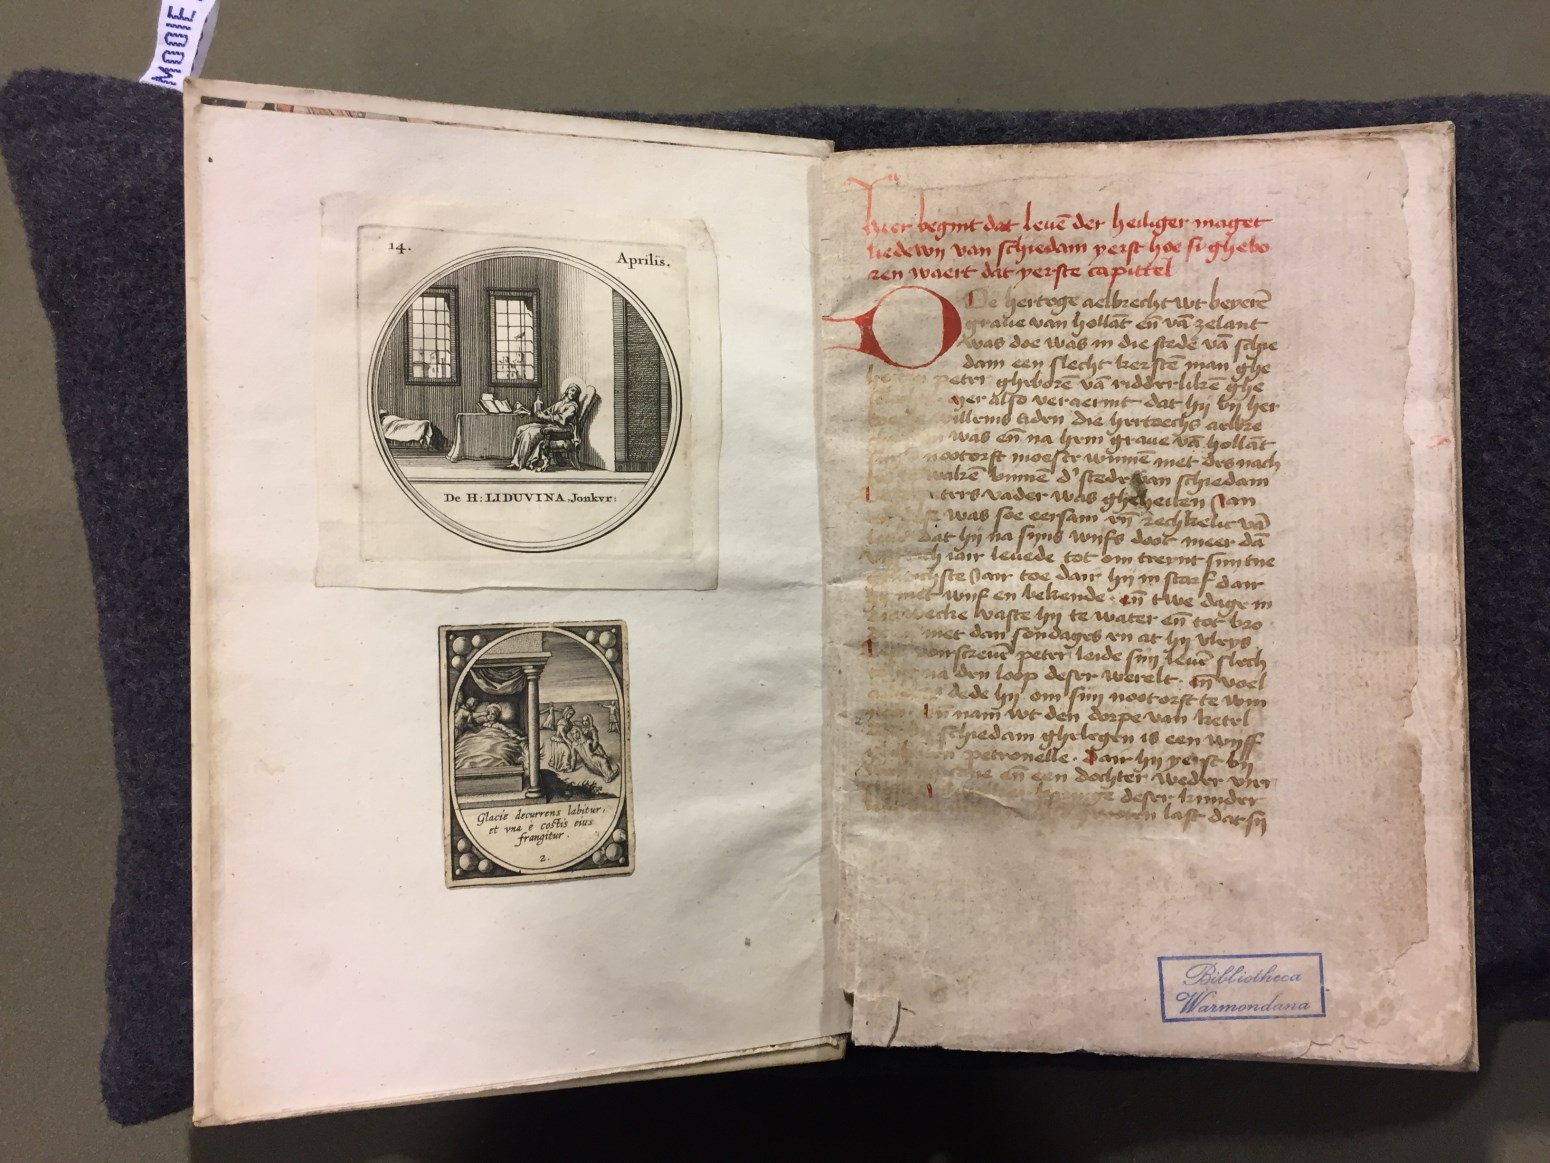 MOOIE
14.
Aprilis.
De H: LIDUVINA. Jonkvr:
Glacie decurrens labitur,
et vna e costis eius
frangitur.
2.
hier begint dat leuē der heiliger maget
liedewy van schiedam yerst hoe si ghebo
ren waert dat yerste capittel
De hertoge aelbrecht wt beyerē
graue van hollāt eñ vā zelant
was doe was in die stede vā schie
dam een slecht kersten man ghe
peter gheborē vā ridderlikē ghe
also veraermt dat hij bij her
willems tiden die hertoechs aelbre
was eñ na hem graue vā hollāt
nootorft moeste winnen met des nach
waken binnen d' stede van schiedam
vader was gheheiten Jan
was soe eersam eñ rechkelic vā
dat hij na sijns wijfs doot meer dā
iair leuede tot omtrent sijn tne
iair toe dair hij in starf dair
wijf en bekende. eñ twe dage in
weke vaste hij te water eñ tot bro
met dan sondages en at hij vleys
peter leide sijn leuē slech
den loop deser werelt. eñ voel
dede hij om sijn nootorft te win
nam wt den dorpe van ketel
schiedam ghelegen is een wijff
petronelle. Dair hij yerst bij
eñ een dochter weder vier
deser kinder
waren last dat sij
Bibliotheca
Warmondana